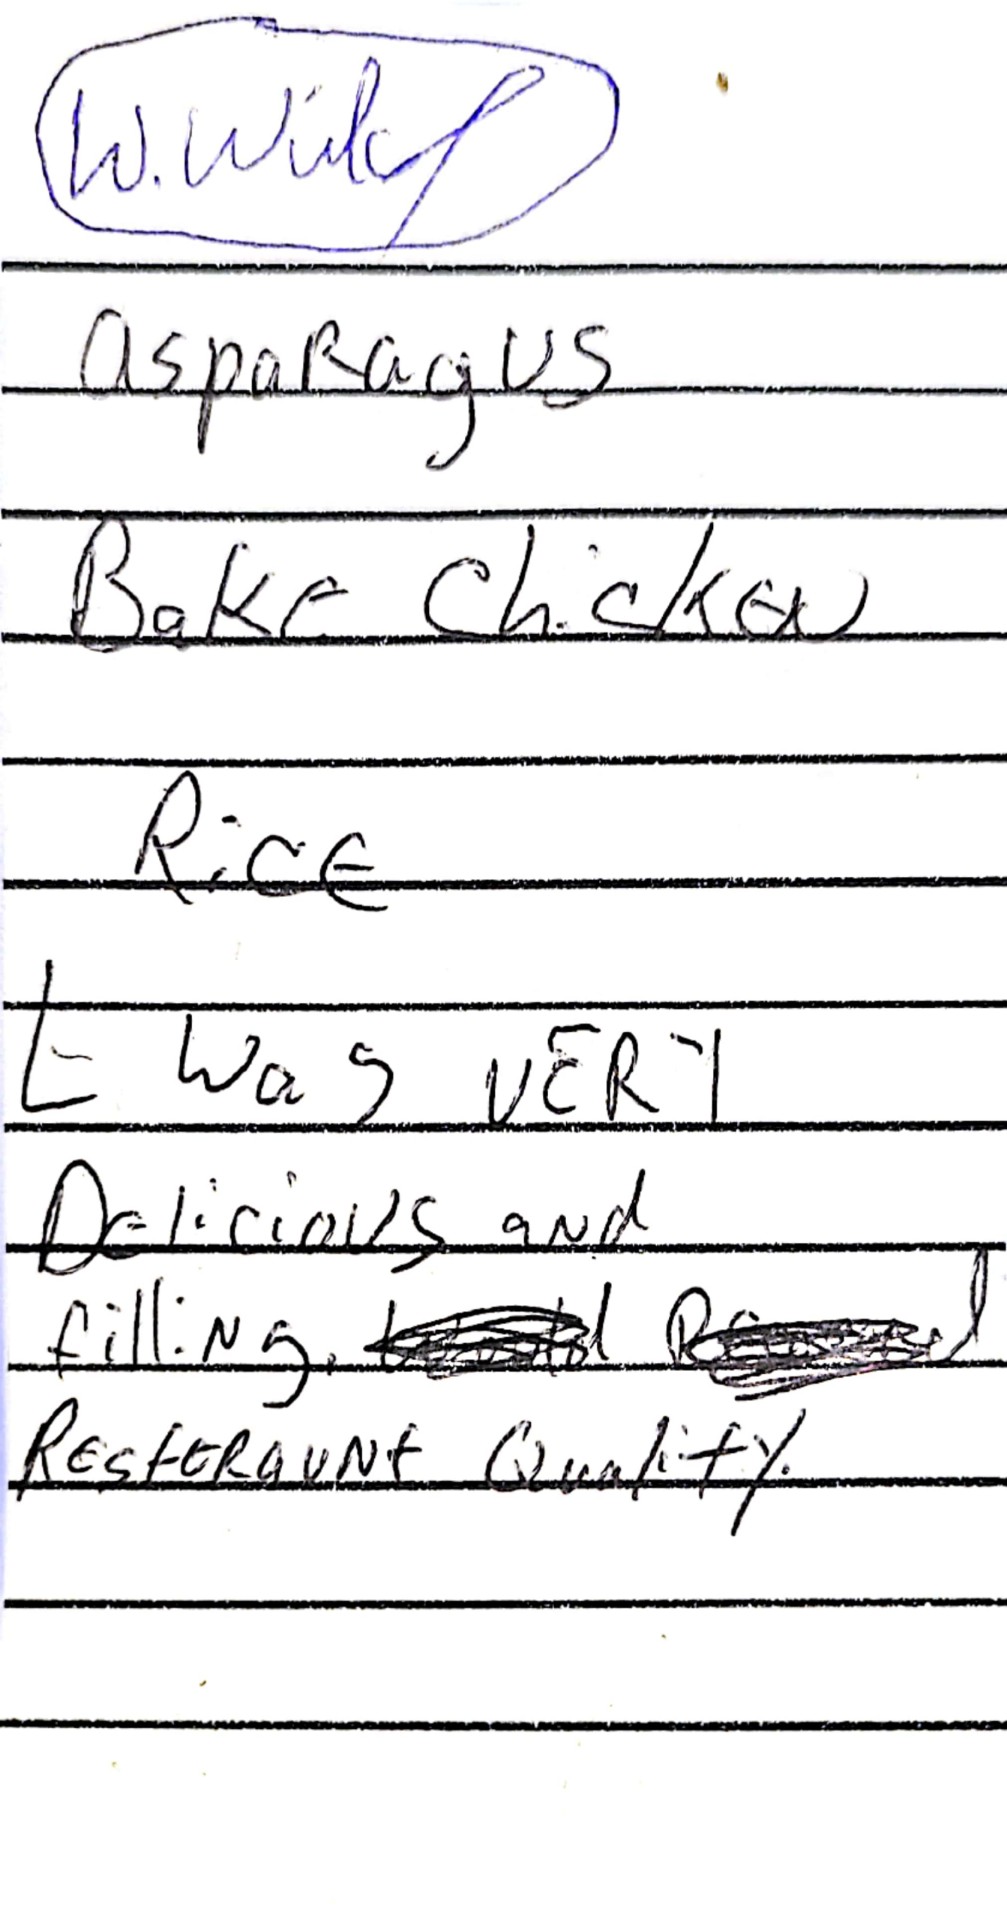 Asparagus
Bake Chicken
Rice
It was very
Delicious and
filling.
Resteraunt Quality.